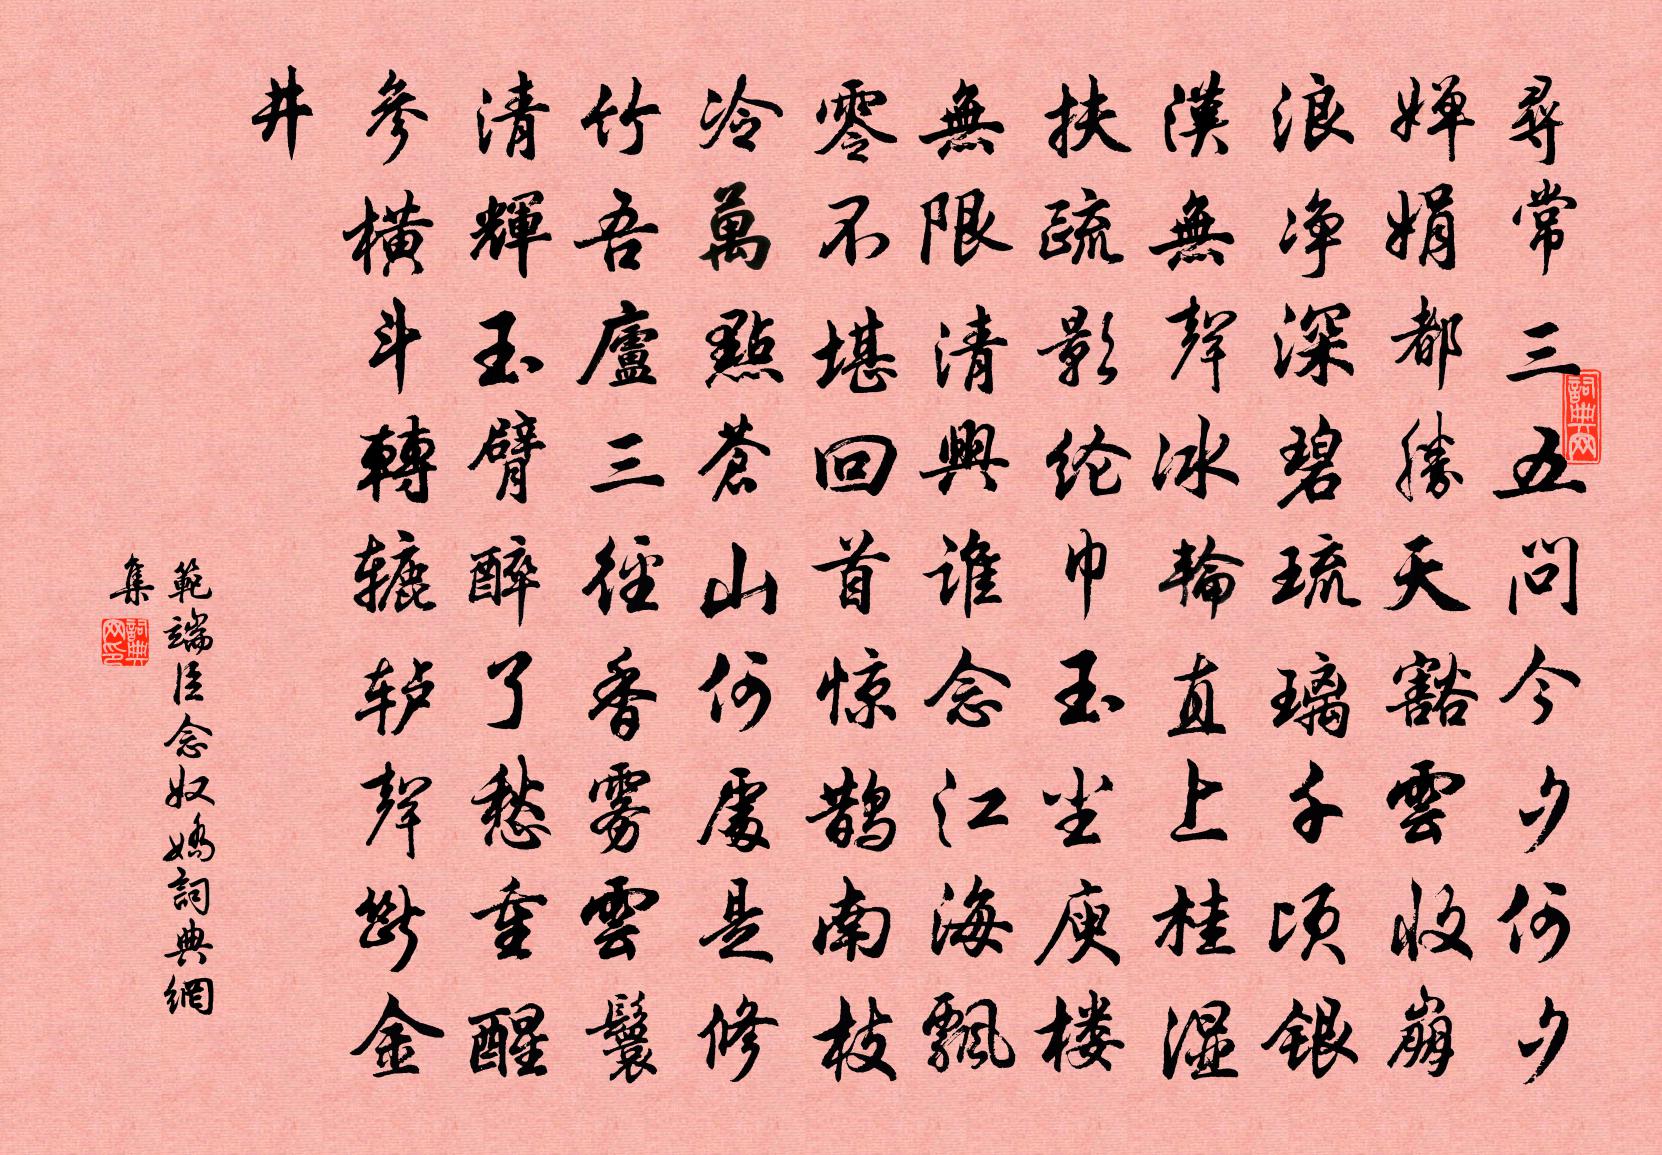 尋常三五問今夕何夕
嬋娟都勝天豁雲收崩
浪净深碧琉璃千頃銀
漢無聲冰輪直上桂濕
扶疏影纶巾玉尘庾楼
無限清興誰念江海飄
零不堪回首惊鹊南枝
冷萬點蒼山何處是修
竹吾廬三徑香雾雲鬟
清輝玉臂醉了愁重醒
參橫斗轉辘轳聲斷金
井
範端臣念奴嬌詞典網
集
詞典网
詞典网印